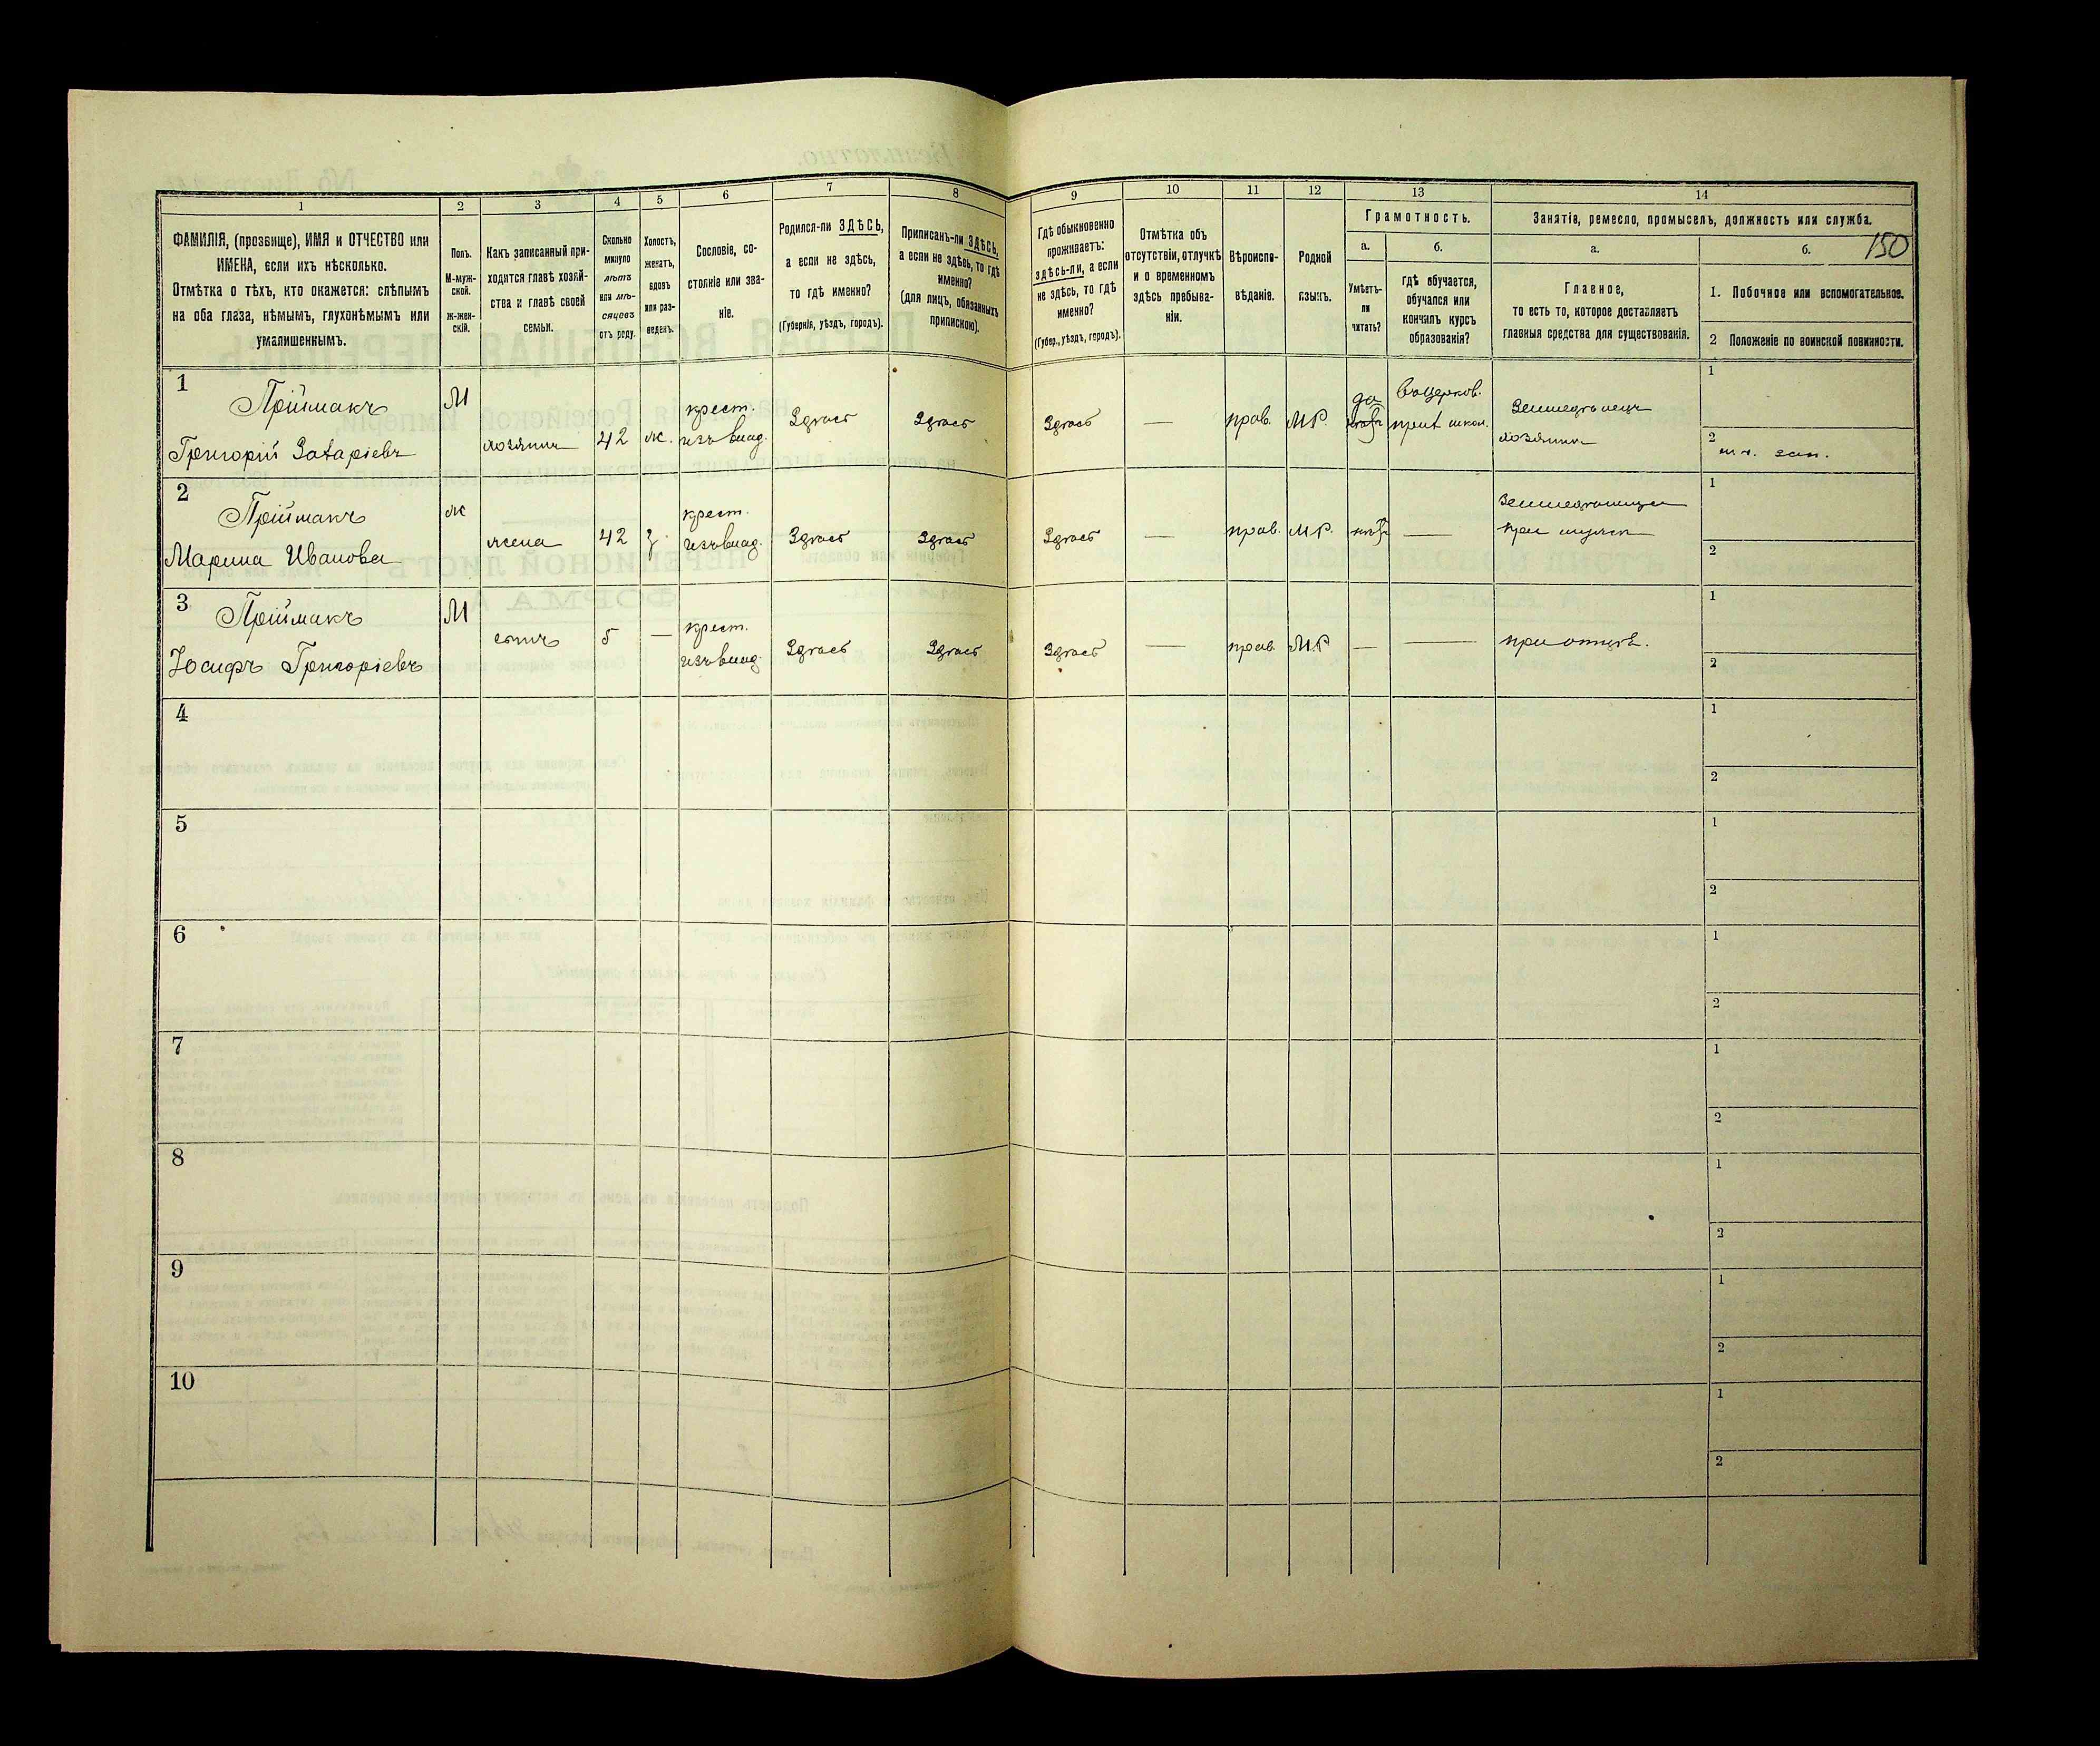 1
2
3
4
5
6
7
8
9
10
11
12
13
14
ФАМИЛІЯ, (прозвище), ИМЯ и ОТЧЕСТВО или
ИМЕНА, если ихъ нѣсколько.
Отмѣтка о тѣхъ, кто окажется: слѣпымъ
на оба глаза, нѣмымъ, глухонѣмымъ или
умалишеннымъ.
Полъ.
М-муж-
ской.
ж-жен-
скій.
Какъ записанный при-
ходится главѣ хозяй-
ства и главѣ своей
семьи.
Сколько
минуло
лѣтъ
или мѣ-
сяцевъ
отъ роду.
Холостъ,
женатъ,
вдовъ
или раз-
веденъ.
Сословіе, со-
стояніе или зва-
ніе.
Родился-ли ЗДѢСЬ,
а если не здѣсь,
то гдѣ именно?
(Губернія, уѣздъ, городъ).
Приписанъ-ли ЗДѢСЬ,
а если не здѣсь, то гдѣ
именно?
(для лицъ, обязанныхъ
припискою).
Гдѣ обыкновенно
проживаетъ:
здѣсь-ли, а если
не здѣсь, то гдѣ
именно?
(Губер., уѣздъ, городъ).
Отмѣтка объ
отсутствіи, отлучкѣ
и о временномъ
здѣсь пребыва-
ніи.
Вѣроиспо-
вѣданіе.
Родной
языкъ.
Грамотность.
а.
Умѣетъ-
ли
читать?
б.
гдѣ обучается,
обучался или
кончилъ курсъ
образованія?
Занятіе, ремесло, промыселъ, должность или служба.
а.
Главное,
то есть то, которое доставляетъ
главныя средства для существованія.
б.
150
1. Побочное или вспомогательное.
2 Положеніе по воинской повинности.
1
Пріймакъ
Григорій Захаріевъ
М
хозяинъ
42
ж.
крест.
изъ влад.
Здѣсь
Здѣсь
Здѣсь
—
прав.
М.Р.
да
въ церков.
прих школ.
Земледѣлецъ
хозяинъ
1
2
2
Пріймакъ
Марина Иванова
ж
жена
42
з.
крест.
изъ влад.
Здѣсь
Здѣсь
Здѣсь
—
прав.
М.Р.
нѣтъ
—
при мужѣ
1
2
3
Пріймакъ
Іосифъ Григоріевъ
М
сынъ
5
—
крест.
изъ влад.
Здѣсь
Здѣсь
Здѣсь
—
прав.
М.Р
—
—
при отцѣ.
1
2
4
1
2
5
1
2
6
1
2
7
1
2
8
1
2
9
1
2
10
1
2